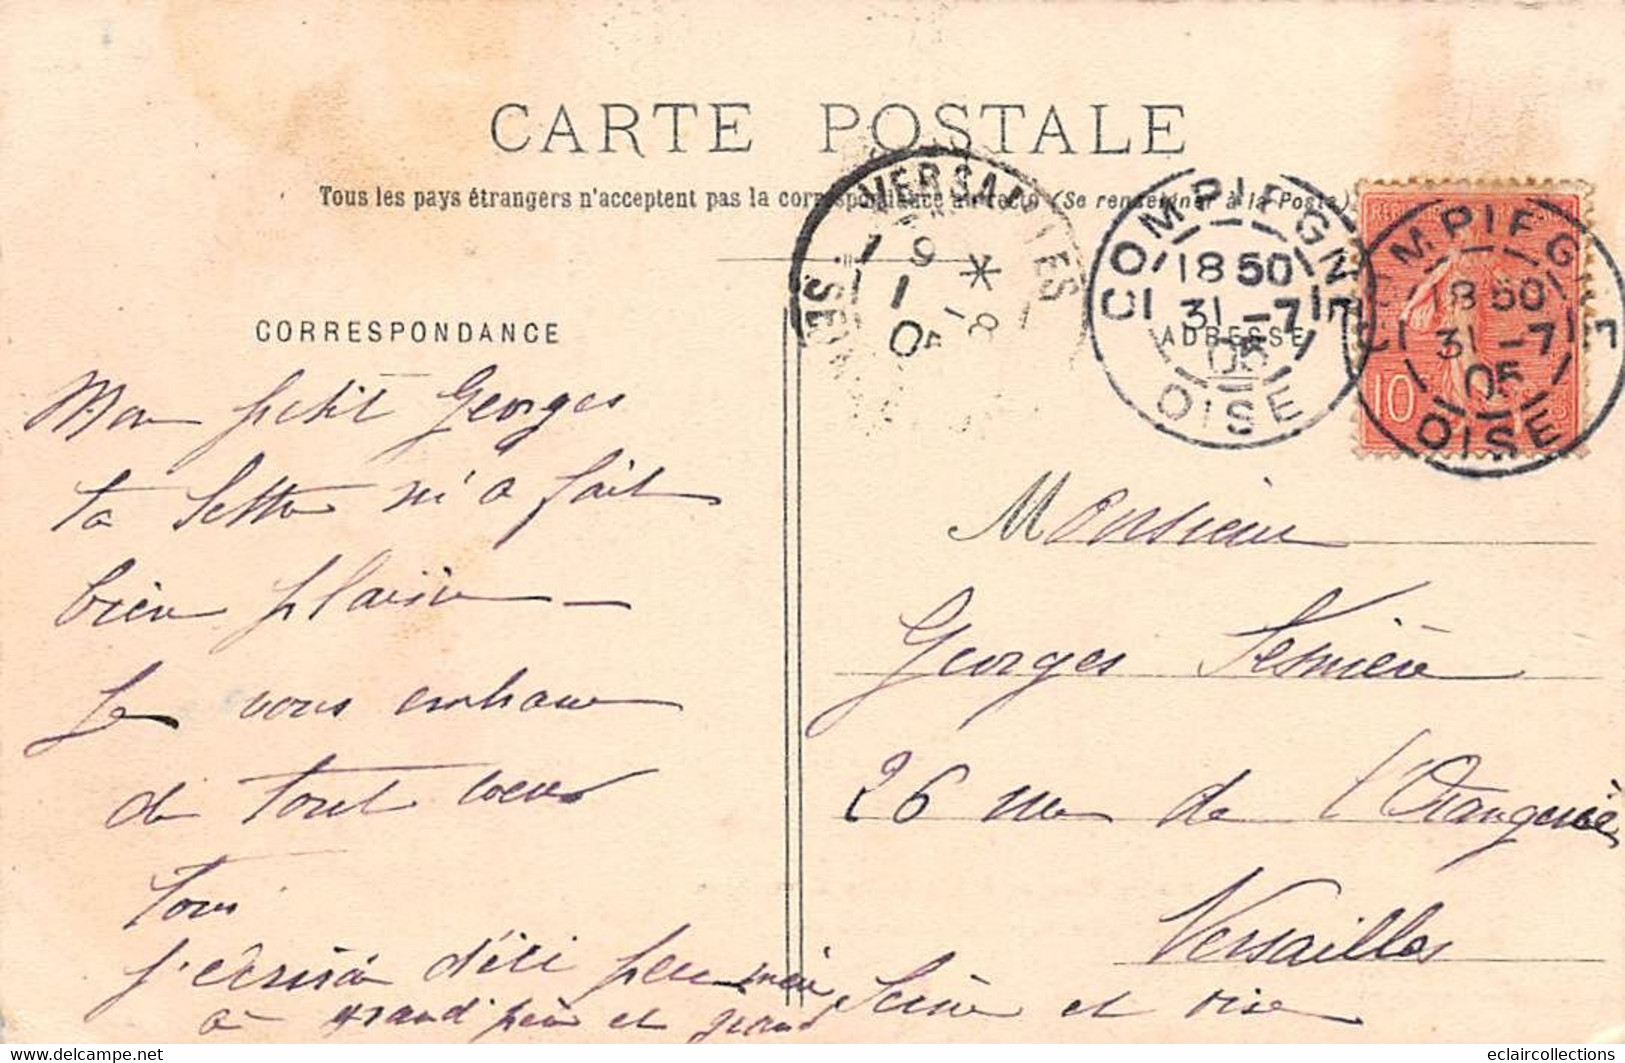 CARTE POSTALE
Tous les pays étrangers n'acceptent pas la correspondance au recto (Se renseigner à la Poste)
CORRESPONDANCE
Mon petit Georges
ta lettre m'a fait
bien plaisir
Je vous embrasse
de tout coeur
tous
J'écrirai d'ici peu
à grand père et grand
VERSAILLES
COMPIEGNE
18 50
31 -7
05
OISE
COMPIEGNE
18 50
31 -7
05
OISE
10
ADRESSE
Monsieur
Georges
26 rue de l'Orangerie
Versailles
Seine et Oise
eclaircollections